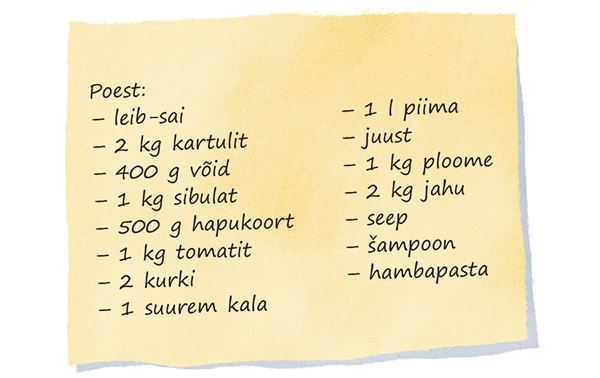 Poest:
– leib-sai
– 2 kg kartulit
– 400 g võid
– 1 kg sibulat
– 500 g hapukoort
– 1 kg tomatit
– 2 kurki
– 1 suurem kala
– 1 l piima
– juust
– 1 kg ploome
– 2 kg jahu
– seep
– šampoon
– hambapasta